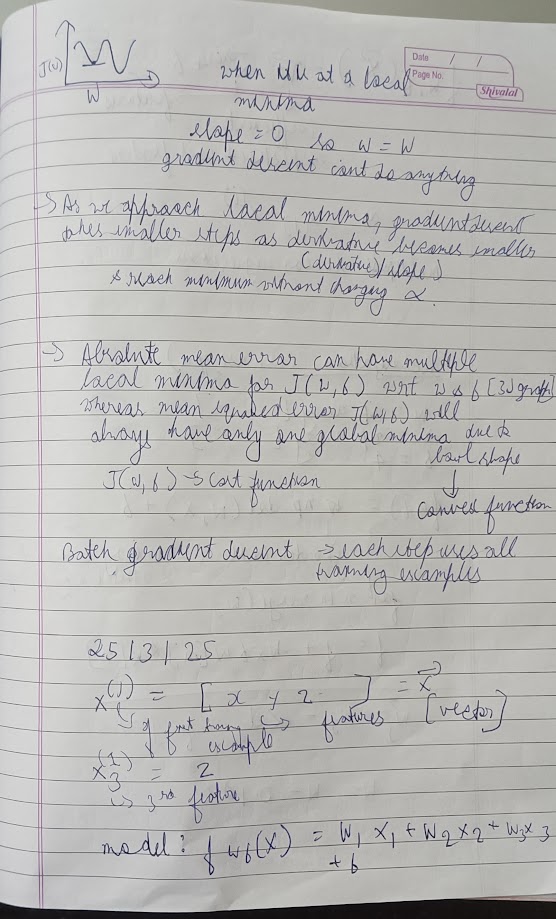 J(w)
W
Date / /
Page No.
Shivalal
when at a local
minima
slope = 0 so w = w
gradient descent cant do anything
→ As we approach local minima, gradient descent
takes smaller steps as derivative becomes smaller
(derivative / slope)
& reach minimum without changing α.
→ Absolute mean error can have multiple
local minima for J(w,b) wrt w & b [3D graph]
whereas mean squared error J(w,b) will
always have only one global minima due to
bowl shape
J(w,b) → cost function
↓
Convex function
Batch gradient descent → each step uses all
training examples
25/3/25
x^(1) = [ x y z ] = x⃗
↳ of first training example
↳ features
[vector]
x_3^(1) = z
↳ 3rd feature
model : f wb(x) = w1 x1 + w2 x2 + w3 x3
+ b